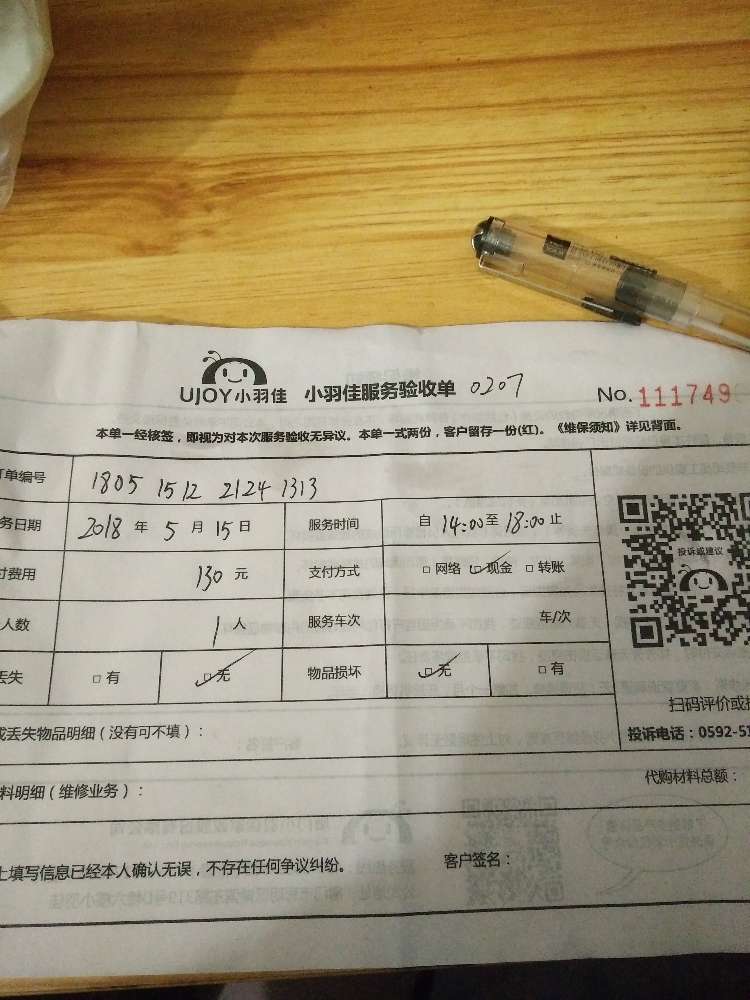 UJOY小羽佳 小羽佳服务验收单 0207 No. 111749
本单一经核签，即视为对本次服务验收无异议。本单一式两份，客户留存一份(红)。《维保须知》详见背面。
订单编号 1805 1512 2124 1313
务日期 2018 年 5 月 15 日 服务时间 自 14:00 至 18:00 止
付费用 130 元 支付方式 □ 网络 ☑ 现金 □ 转账
人数 1 人 服务车次 车/次
丢失 □ 有 ☑ 无 物品损坏 ☑ 无 □ 有
投诉或建议
扫码评价或
或丢失物品明细（没有可不填）： 投诉电话：0592-51
料明细（维修业务）： 代购材料总额：
上填写信息已经本人确认无误，不存在任何争议纠纷。 客户签名：